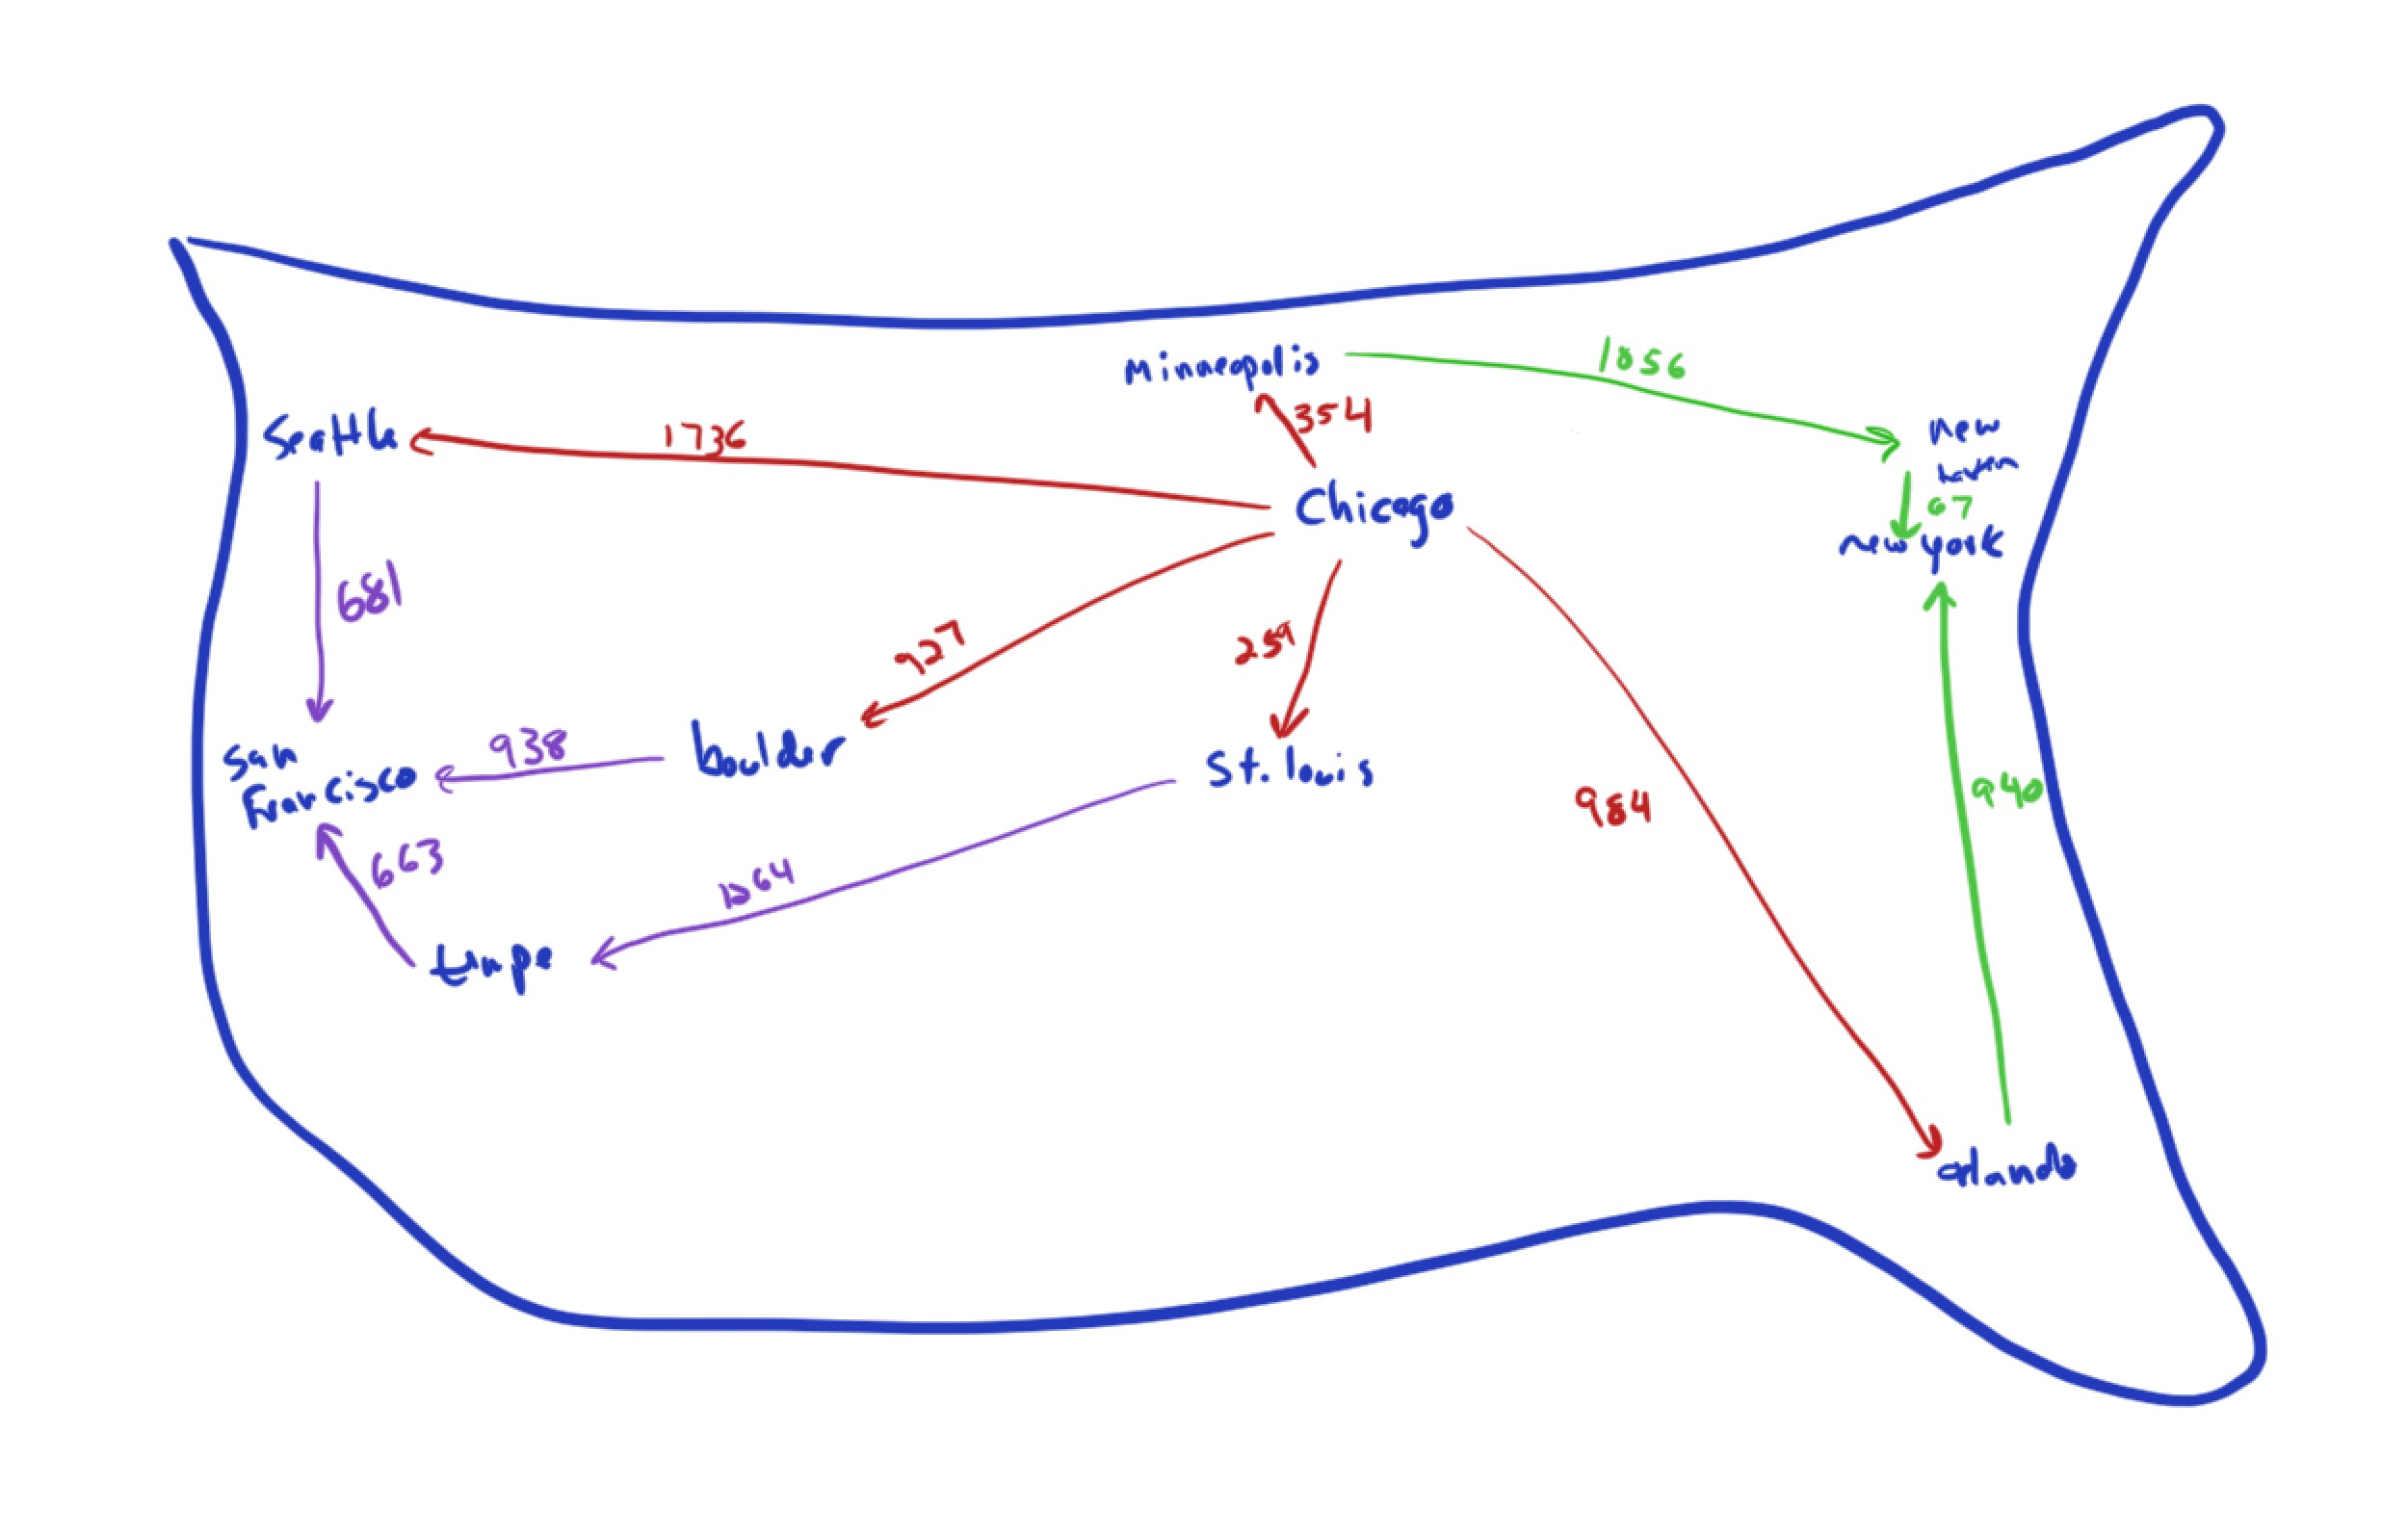 Minneapolis
1056
354
new
haven
Seattle
1736
Chicago
67
new york
681
927
259
San
Francisco
938
boulder
St. louis
984
940
663
1264
tempe
orlando